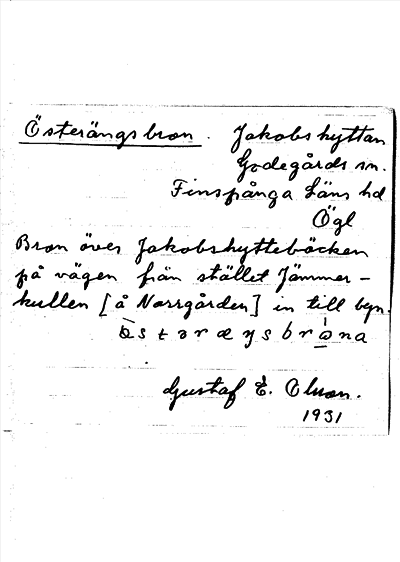 Österängsbron. Jakobshyttan
Godegårds sn.
Finspånga Läns hd
Ögl
Bron över Jakobshyttebäcken
på vägen från stället Jämmer-
kullen [å Norrgården] in till byn.
Gustaf E. Olson.
1931